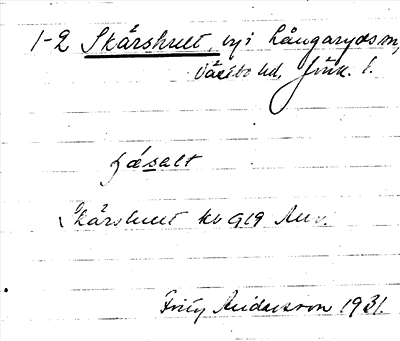 1-2 Skårshult, by i Långaryds sn,
Västbo hd, Jönk. l.
Skårshult kb 1919 Anv.
Fritz Andersson 1931.